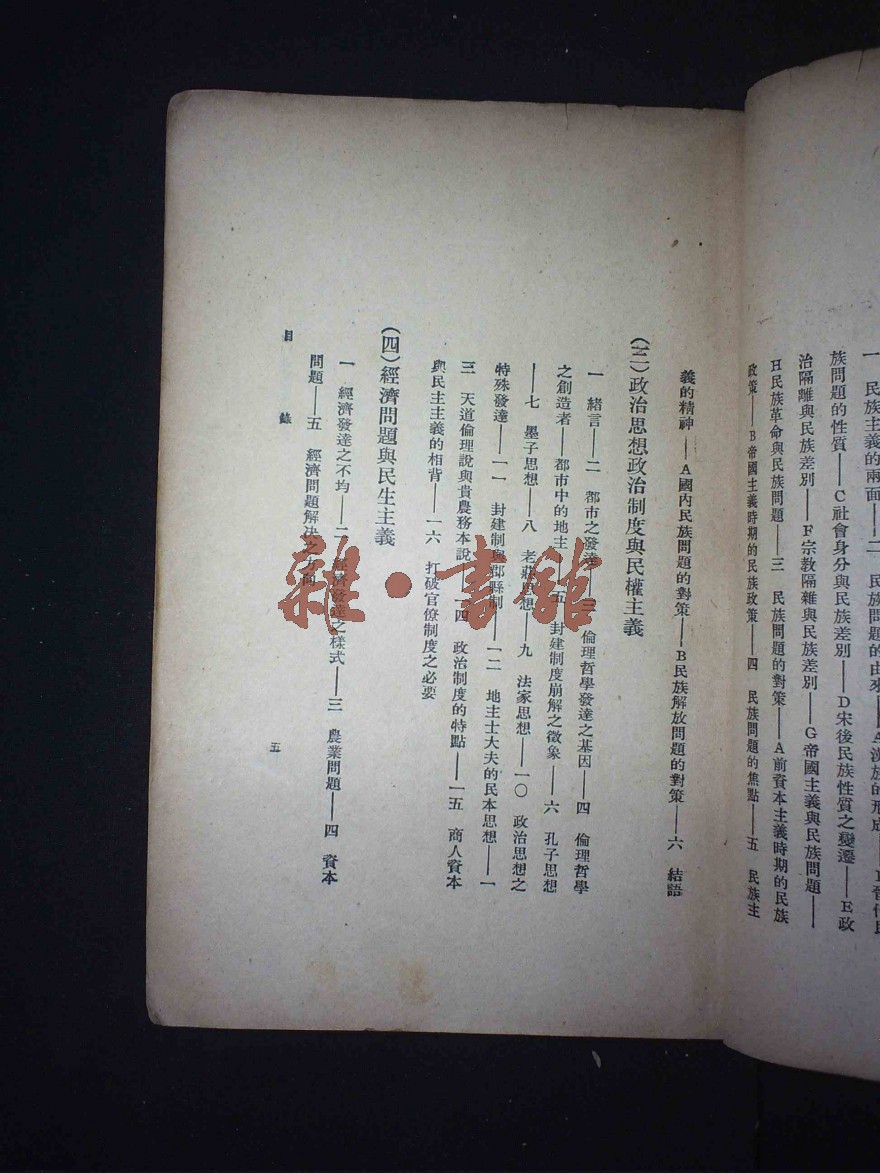 一　民族主義的兩面——二　民族問題的由來——A漢族的形成——
族問題的性質——C社會身分與民族差別——D宋後民族性質之變遷——E政
治隔離與民族差別——F宗教隔離與民族差別——G帝國主義與民族問題——
H民族革命與民族問題——三　民族問題的對策——A前資本主義時期的民族
政策——B帝國主義時期的民族政策——四　民族問題的焦點——五　民族主
義的精神——A國內民族問題的對策——B民族解放問題的對策——六　結語
(三)政治思想政治制度與民權主義
一　緒言——二　都市之發達——三　倫理哲學發達之基因——四　倫理哲學
之創造者——都市中的地主——五　封建制度崩解之徵象——六　孔子思想
——七　墨子思想——八　老莊思想——九　法家思想——一〇　政治思想之
特殊發達——一一　封建制與郡縣制——一二　地主士大夫的民本思想——一
三　天道倫理說與貴農務本說——一四　政治制度的特點——一五　商人資本
與民主主義的相背——一六　打破官僚制度之必要
(四)經濟問題與民生主義
一　經濟發達之不均——二　經濟發達之樣式——三　農業問題——四　資本
問題——五　經濟問題解決之方向
目　錄
五
雜·書館